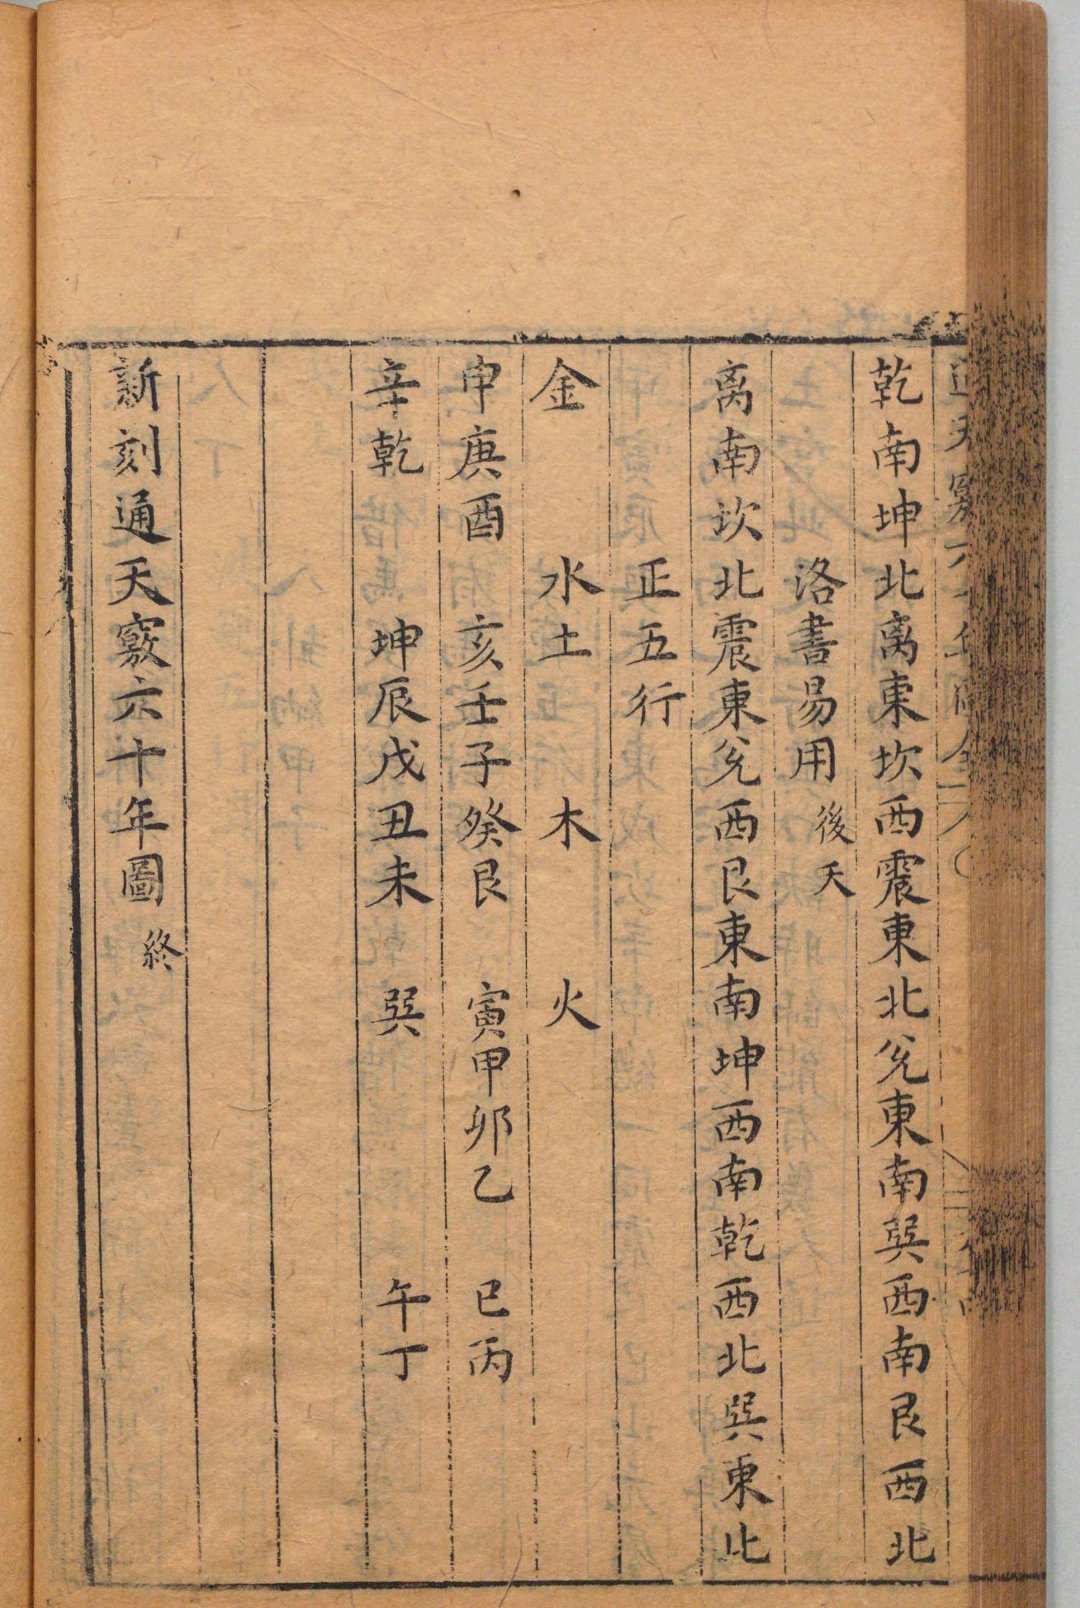 乾南坤北离東坎西震東北兊東南巽西南艮西北
洛書易用 後天
离南坎北震東兊西艮東南坤西南乾西北巽東北
正五行
金 水土 木 火
申庚酉 亥壬子癸艮 寅甲卯乙 巳丙
辛乾 坤辰戌丑未 巽 午丁
新刻通天竅六十年圖 終